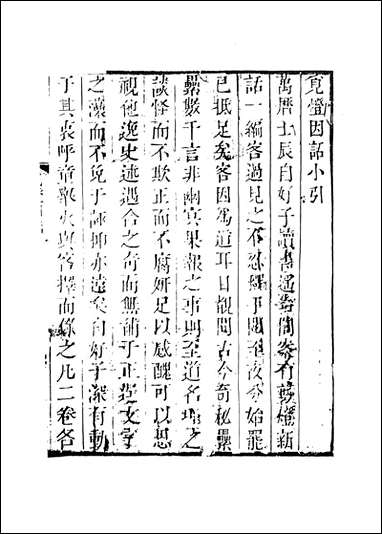 覓燈因話小引
萬曆壬辰自好子讀書遙青閣案有剪燈新
話一編客過見之不忍釋手閱至夜分始罷
已抵足矣客因為道耳目睹聞古今奇秘纍
纍數千言非幽冥果報之事則至道名理之
談怪而不欺正而不腐妍足以感醜可以思
視他逸史述遇合之奇而無補于正逞文字
之藻而不免于誣抑亦遠矣自好子深有動
于其衷呼童舉火與客擇而錄之凡二卷各